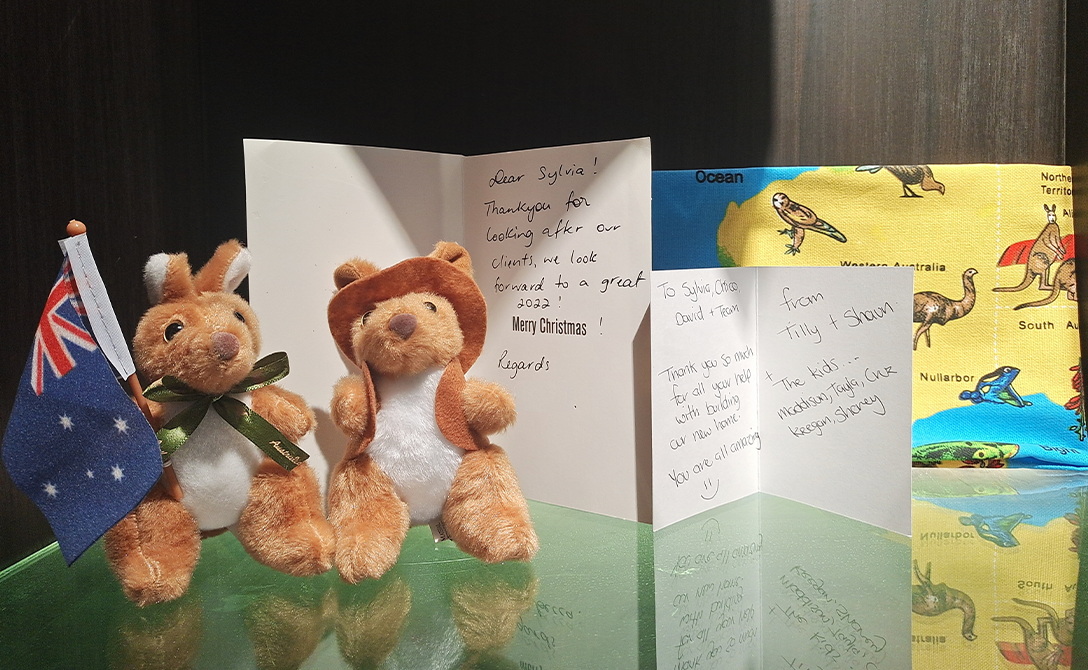 Dear Sylvia!
Thankyou for
looking after our
clients, we look
forward to a great
2022!
Merry Christmas !
Regards
To Sylvia,
David + Team
Thank you so much
for all your help
with building
our new home.
You are all amazing
from
Tilly + Shaun
+
The kids...
Maddison, Tayla, Cruz
Keegan,
Ocean
Northe
Territo
Western Australia
South Au
Nullarbor
Australia